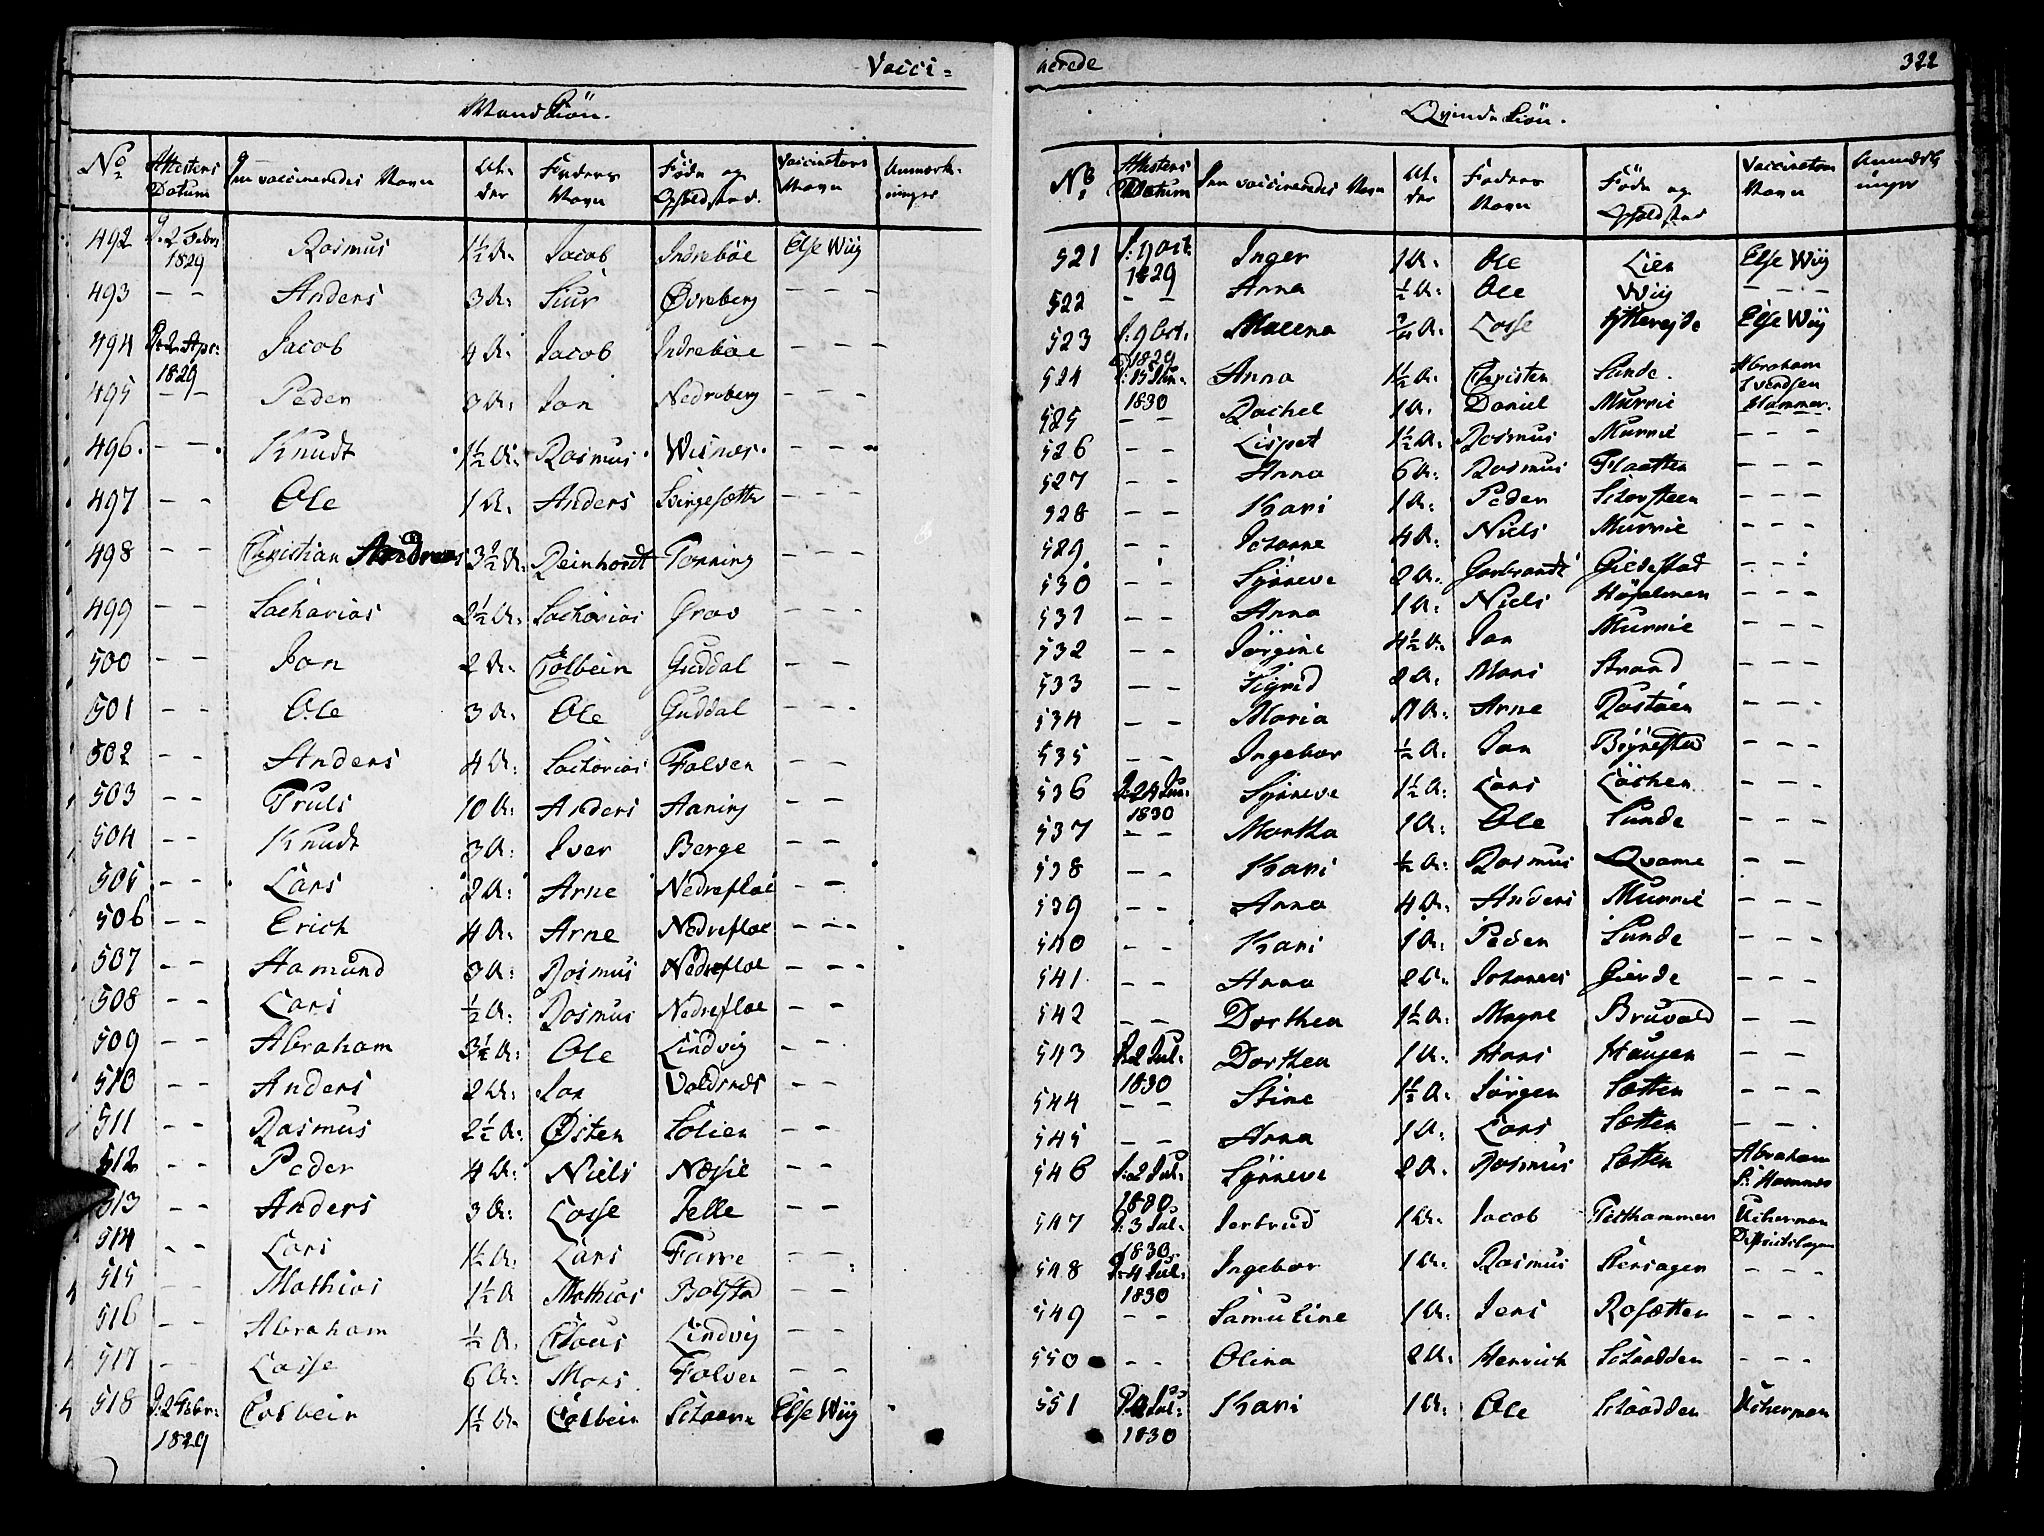 Vacci=
Mandkiön.
No Attestens Datum Den vaccineredes Navn Alder Faders Navn Føde og Opholdsted. Vaccinators Navn Anmærkninger
492 D: 2 Febr 1829 Rasmus 1½ A: Jacob Indrebøe Else Wiig
493 – – Anders 3 A: Siur Øvreberg – – –
494 D: 2 Apr: 1829 Jacob 4 A: Jacob Indrebøe – – –
495 – – Peder 3 A: Jon Nedreberg – – –
496. – – Knudt 1½ A: Rasmus Wisnes. – – –
497 – – Ole 1 A: Anders – – –
498 – – Christian Andreas 3½ A: Reinhardt Torning – – –
499 – – Zacharias 2½ A: Zacharias Grov – – –
500 – – Jon 2 A: Colbein Guddal – –
501 – – Ole 3 A: Ole Guddal – – –
502 – – Anders 4 A: Zacharias Folven – –
503 – – Truls 10 A: Anders Aaning – –
504 – – Knudt 3 A: Iver Berge – –
505 – – Lars 2 A: Arne Nedrefloe – –
506 – – Erich 4 A: Arne Nedrefloe – – –
507 – – Aamund 3 A: Rasmus Nedrefloe – – –
508 – – Lars ½ A: Rasmus Nedrefloe – –
509 – – Abraham 3½ A: Ole Lindvig – –
510 – – Anders 2 A: Jon Valdsnes – –
511 – – Rasmus 2½ A: Østen Solien – –
512 – – Peder 4 A: Niels Næsie – –
513 – – Anders 3 A: Lasse Telle – –
514 – – Lars 1½ A: Lars – –
515 – – Mathias 1½ A Mathias Bolstad – –
516 – – Abraham ½ A: Claus Lindvig – –
517 – – Lasse 6 A: Mons Folven – –
518 D: 2 Febr: 1829 Colbein 1½ A: Colbein Else Wiig
nerede 322
Qvindekiön.
No Attestens Datum Den vaccineredes Navn Alder Faders Navn Føde og Opholdsted Vaccinators Navn
521 D: 9 Oct: 1829 Inger 1 A: Ole Lien Else Wiig
522 – – Anna ½ A: Ole Wiig – – –
523 D: 9 Oct: 1829 Malena A: Lasse Else Wiig
524 D: 15 Jun: 1830 Anna 1½ A: Christen Sunde. Abraham Svendsen Hammer.
525 – – Rachel 1 A: Daniel Murrie
526 – – Lispet 1½ A: Rasmus Murrie – – –
527 – – Anna 6 A: Rasmus Flaatten – – –
528 – – Kari 1 A: Peder Schorsteen – – –
529 – – Johanne 4 A: Niels Murrie – – –
530 – – Synneve 2 A: Garbrandt Gildestad – – –
531 – – Anna 1 A: Niels Høyolmen – – –
532 – – Jørgine 4½ A: Jon Murrie – – –
533 – – Sigrid 2 A: Mons Strand – – –
534 – – Maria 11 A: Arne Rastøen – – –
535 – – Ingebor ½ A: Jon Bøynestad – – –
536 D: 24 Jun: 1830 Synneve 1½ A: Lars Løchen – – –
537 – – Martha 1 A: Ole Sunde – – –
538 – – Kari ½ A: Rasmus Qvame – –
539 – – Anna 4 A: Anders Murrie – – –
540 – – Kari 1 A: Peder Sunde – – –
541 – – Anna 2 A: Johannes Gierde – – –
542 – – Dorthea 1½ A: Magne Bruvold – –
543 D: 2 Jul: 1830 Dorthea 1 A: Hans Haugen – –
544 – – Stine 1½ A: Jørgen Sætten – – –
545 – – Anna 1 A: Lars Sætten – – –
546 D: 2 Jul: 1830 Synneve 2 A: Rasmus Sætten Abraham S: Hammer
547 D: 3 Jul: 1830 Jertrud 1 A: Jacob Testhammer Ucherman Districtslæge
548 D: 4 Jul: 1830 Ingebor 1 A: Rasmus – – –
549 – – Samueline 1 A: Jens Rosætten – – –
550 – – Olina 2 A: Henrich Schaadden – – –
551 1830 Kari 1 A: Ole Schaadden Ucherman